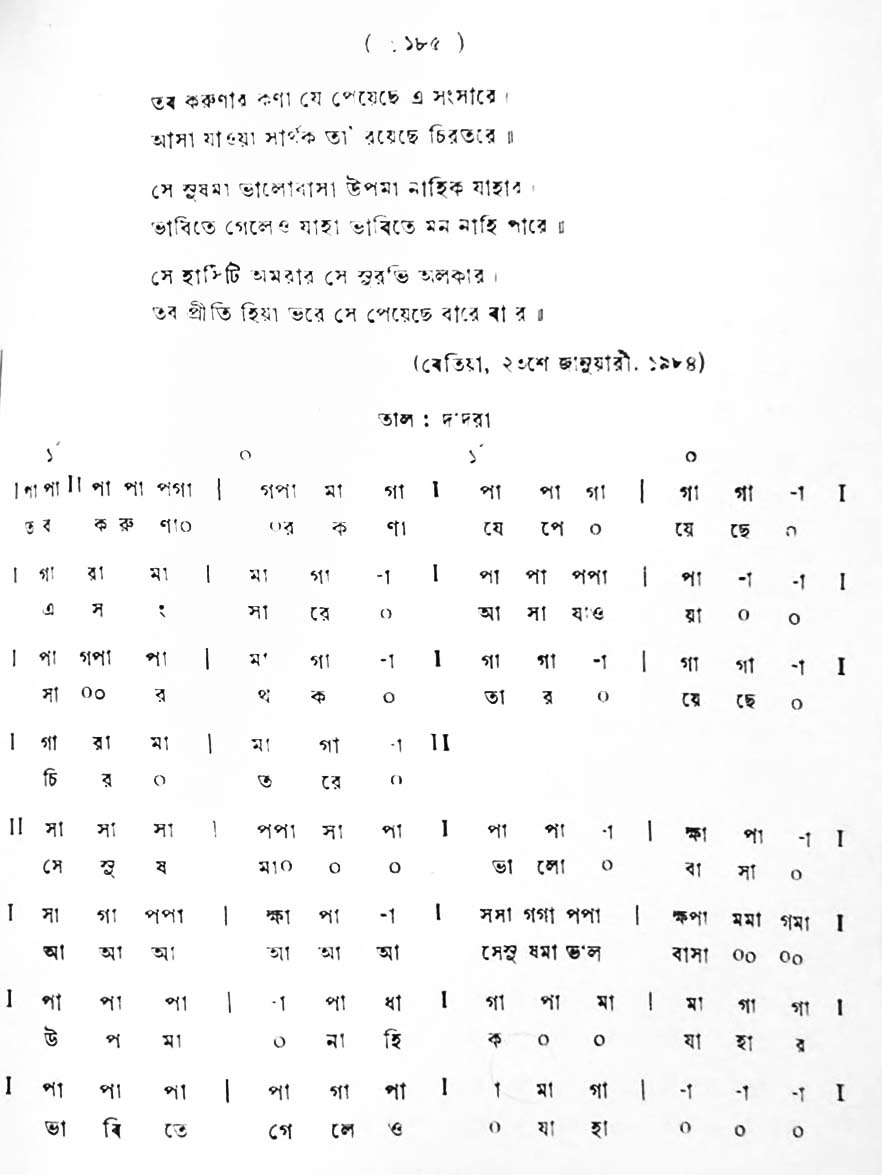 ( ১৮৫ )
তব করুণার কণা যে পেয়েছে এ সংসারে।
আসা যাওয়া সার্থক তা' রয়েছে চিরতরে॥
সে সুষমা ভালোবাসা উপমা নাহিক যাহার।
ভাবিতে গেলেও যাহা ভাবিতে মন নাহি পারে॥
সে হাসিটি অমরার সে সুরভি অলকার।
তব প্রীতি হিয়া ভরে সে পেয়েছে বারে বা র॥
(বেতিয়া, ২৩শে জানুয়ারী. ১৯৮৪)
তাল : দাদরা
১´ ০ ১´ ০
I পা পা II পা পা পগা | গপা মা গা I পা পা গা | গা গা -া I
ত ব ক রু ণা০ ০র ক ণা যে পে ০ য়ে ছে ০
I গা রা মা | মা গা -া I পা পা পপা | পা -া -া I
এ স ং সা রে ০ আ সা যাও য়া ০ ০
I পা গপা পা | মা গা -া I গা গা -া | গা গা -া I
সা ০০ র থ ক ০ তা র ০ য়ে ছে ০
I গা রা মা | মা গা -া II
চি র ০ ত রে ০
II সা সা সা | পপা সা পা I পা পা -া | ক্ষা পা -া I
সে সু ষ মা০ ০ ০ ভা লো ০ বা সা ০
I সা গা পপা | ক্ষা পা -া I সসা গগা পপা | ক্ষপা মমা গমা I
আ আ আ আ আ আ সেসু ষমা ভাল বাসা ০০ ০০
I পা পা পা | -া পা ধা I গা পা মা | মা গা গা I
উ প মা ০ না হি ক ০ ০ যা হা র
I পা পা পা | পা গা পা I া মা গা | -া -া -া I
ভা বি তে গে লে ও ০ যা হা ০ ০ ০